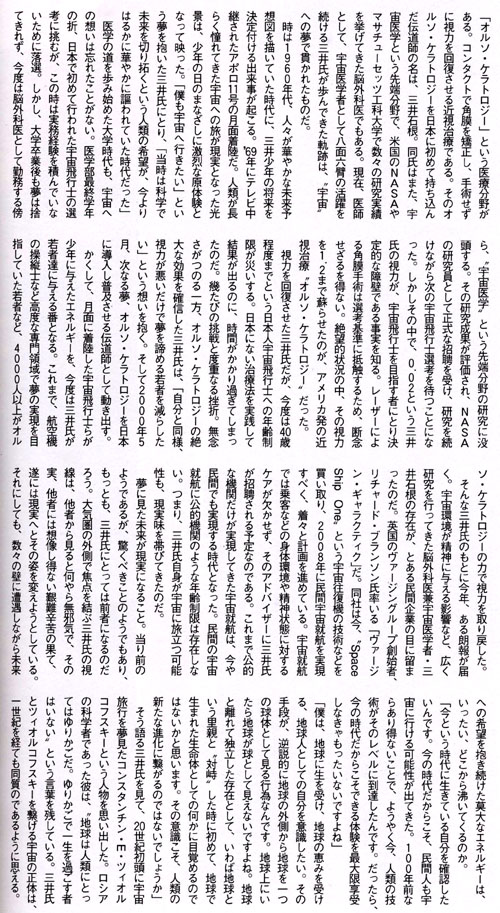 「オルソ・ケラトロジー」という医療分野が
ある。コンタクトで角膜を矯正し、手術せず
に視力を回復させる近視治療である。そのオ
ルソ・ケラトロジーを日本に初めて持ち込ん
だ伝道師の名は、三井石根。同氏はまた、宇
宙医学という先端分野で、米国のNASAや
マサチューセッツ工科大学で数々の研究実績
を挙げてきた脳外科医でもある。現在、医師
として、宇宙医学者として八面六臂の活躍を
続ける三井氏が歩んできた軌跡は、〝宇宙〟
への夢で貫かれたものだ。
時は1960年代、人々が華やかな未来予
想図を描いていた時代に、三井少年の将来を
決定付ける出来事が起こる。'69年にテレビ中
継されたアポロ11号の月面着陸だ。人類が長
らく憧れてきた宇宙への旅が現実となった光
景は、少年の日のまなざしに激烈な原体験と
なって映った。「僕も宇宙へ行きたい」とい
う夢を抱いた三井氏にとり、「当時は科学で
未来を切り拓くという人類の希望が、今より
はるかに華やかに謳われていた時代だった」
医学の道を歩み始めた大学時代も、宇宙へ
の想いは忘れたことがない。医学部最終学年
の折、日本で初めて行われた宇宙飛行士の選
考に挑むが、この時は実務経験を積んでいな
いために落選。しかし、大学卒業後も夢は捨
てきれず、今度は脳外科医として勤務する傍
ら、〝宇宙医学〟という先端分野の研究に没
頭する。その研究成果が評価され、NASA
の研究員として正式な招聘を受け、研究を続
けながら次の宇宙飛行士選考を待つことにな
った。しかしその中で、0.02という三井
氏の視力が、宇宙飛行士を目指す者にとり決
定的な障壁である事実を知る。レーザーによ
る角膜手術は選考基準に抵触するため、断念
せざるを得ない。絶望的状況の中、その視力
を1.2まで蘇らせたのが、アメリカ発の近
視治療〝オルソ・ケラトロジー〟だった。
視力を回復させた三井氏だが、今度は40歳
程度までという日本人宇宙飛行士への年齢制
限が災いする。日本にない治療法を実践して
結果が出るのに、時間がかかり過ぎてしまっ
たのだ。幾たびの挑戦と度重なる挫折。無念
さがつのる一方、オルソ・ケラトロジーの絶
大な効果を確信した三井氏は、「自分と同様、
視力が悪いだけで夢を諦める若者を減らした
い」という想いを抱く。そして2000年5
月、次なる夢、オルソ・ケラトロジーを日本
に導入し普及させる伝道師として動き出す。
かくして、月面に着陸した宇宙飛行士らが
少年に与えたエネルギーを、今度は三井氏が
若者達に与える番となる。これまで、航空機
の操縦士など高度な専門領域で夢の実現を目
指していた若者など、4000人以上がオル
ソ・ケラトロジーの力で視力を取り戻した。
そんな三井氏のもとに今年、ある朗報が届
く。宇宙環境が精神に与える影響など、広く
研究を行ってきた脳外科医兼宇宙医学者・三
井石根の存在が、とある民間企業の目に留ま
ったのだ。英国のヴァージングループ創始者、
リチャード・ブランソン氏率いる「ヴァージ
ン・ギャラクティック」だ。同社は今、「Space
Ship One」という宇宙往復機の技術などを
買い取り、2008年に民間宇宙就航を実現
すべく、着々と計画を進めている。宇宙就航
では乗客などの身体環境や精神状態に対する
ケアが欠かせず、そのアドバイザーに三井氏
が招聘される予定なのである。これまで公的
な機関だけが実現してきた宇宙就航は、今や
民間でも実現する時代となった。民間の宇宙
就航に公的機関のような年齢制限は存在しな
い。つまり、三井氏自身が宇宙に旅立つ可能
性も、現実味を帯びてきたのだ。
夢に見た未来が現実になること。当り前の
ようであるが、驚くべきことのようでもあり、
もっとも、三井氏にとっては前者になるのだ
ろう。大気圏の外側で焦点を結ぶ三井氏の視
線は、他者から見ると何やら無邪気で、その
実、他者には想像し得ない艱難辛苦の果て、
遂には現実へとその姿を変えようとしている。
それにしても、数々の壁に遭遇しながら未来
への希望を抱き続けた莫大なエネルギーは、
いったい、どこから沸いてくるのか。
「今という時代に生きている自分を確認した
いんです。今の時代だからこそ、民間人も宇
宙に行ける可能性が出てきた。100年前な
らあり得ないことで、ようやく今、人類の技
術がそのレベルに到達したんです。だったら、
今の時代だからこそできる体験を最大限享受
しなきゃもったいないですよね」
「僕は、地球に生を受け、地球の恵みを受け
る、地球人としての自分を意識したい。その
手段が、逆説的に地球の外側から地球を一つ
の球体として見る行為なんです。地球上にい
たら地球が球として見えないですよね。地球
と離れて独立した存在として、いわば地球と
いう里親と〝対峙〟した時に初めて、地球で
生まれた生命体としての何かに目覚めるので
はないかと思います。その意識こそ、人類の
新たな進化に繋がるのではないでしょうか」
そう語る三井氏を見て、20世紀初頭に宇宙
旅行を夢見たコンスタンチン・m・ツィオル
コフスキーという人物を思い出した。ロシア
の科学者であった彼は、「地球は人類にとっ
てはゆりかごだ。ゆりかごで一生を過ごす者
はいない」という言葉を残している。三井氏
とツィオルコフスキーを繋げる宇宙の正体は、
一世紀を経ても同質のであるように思える。